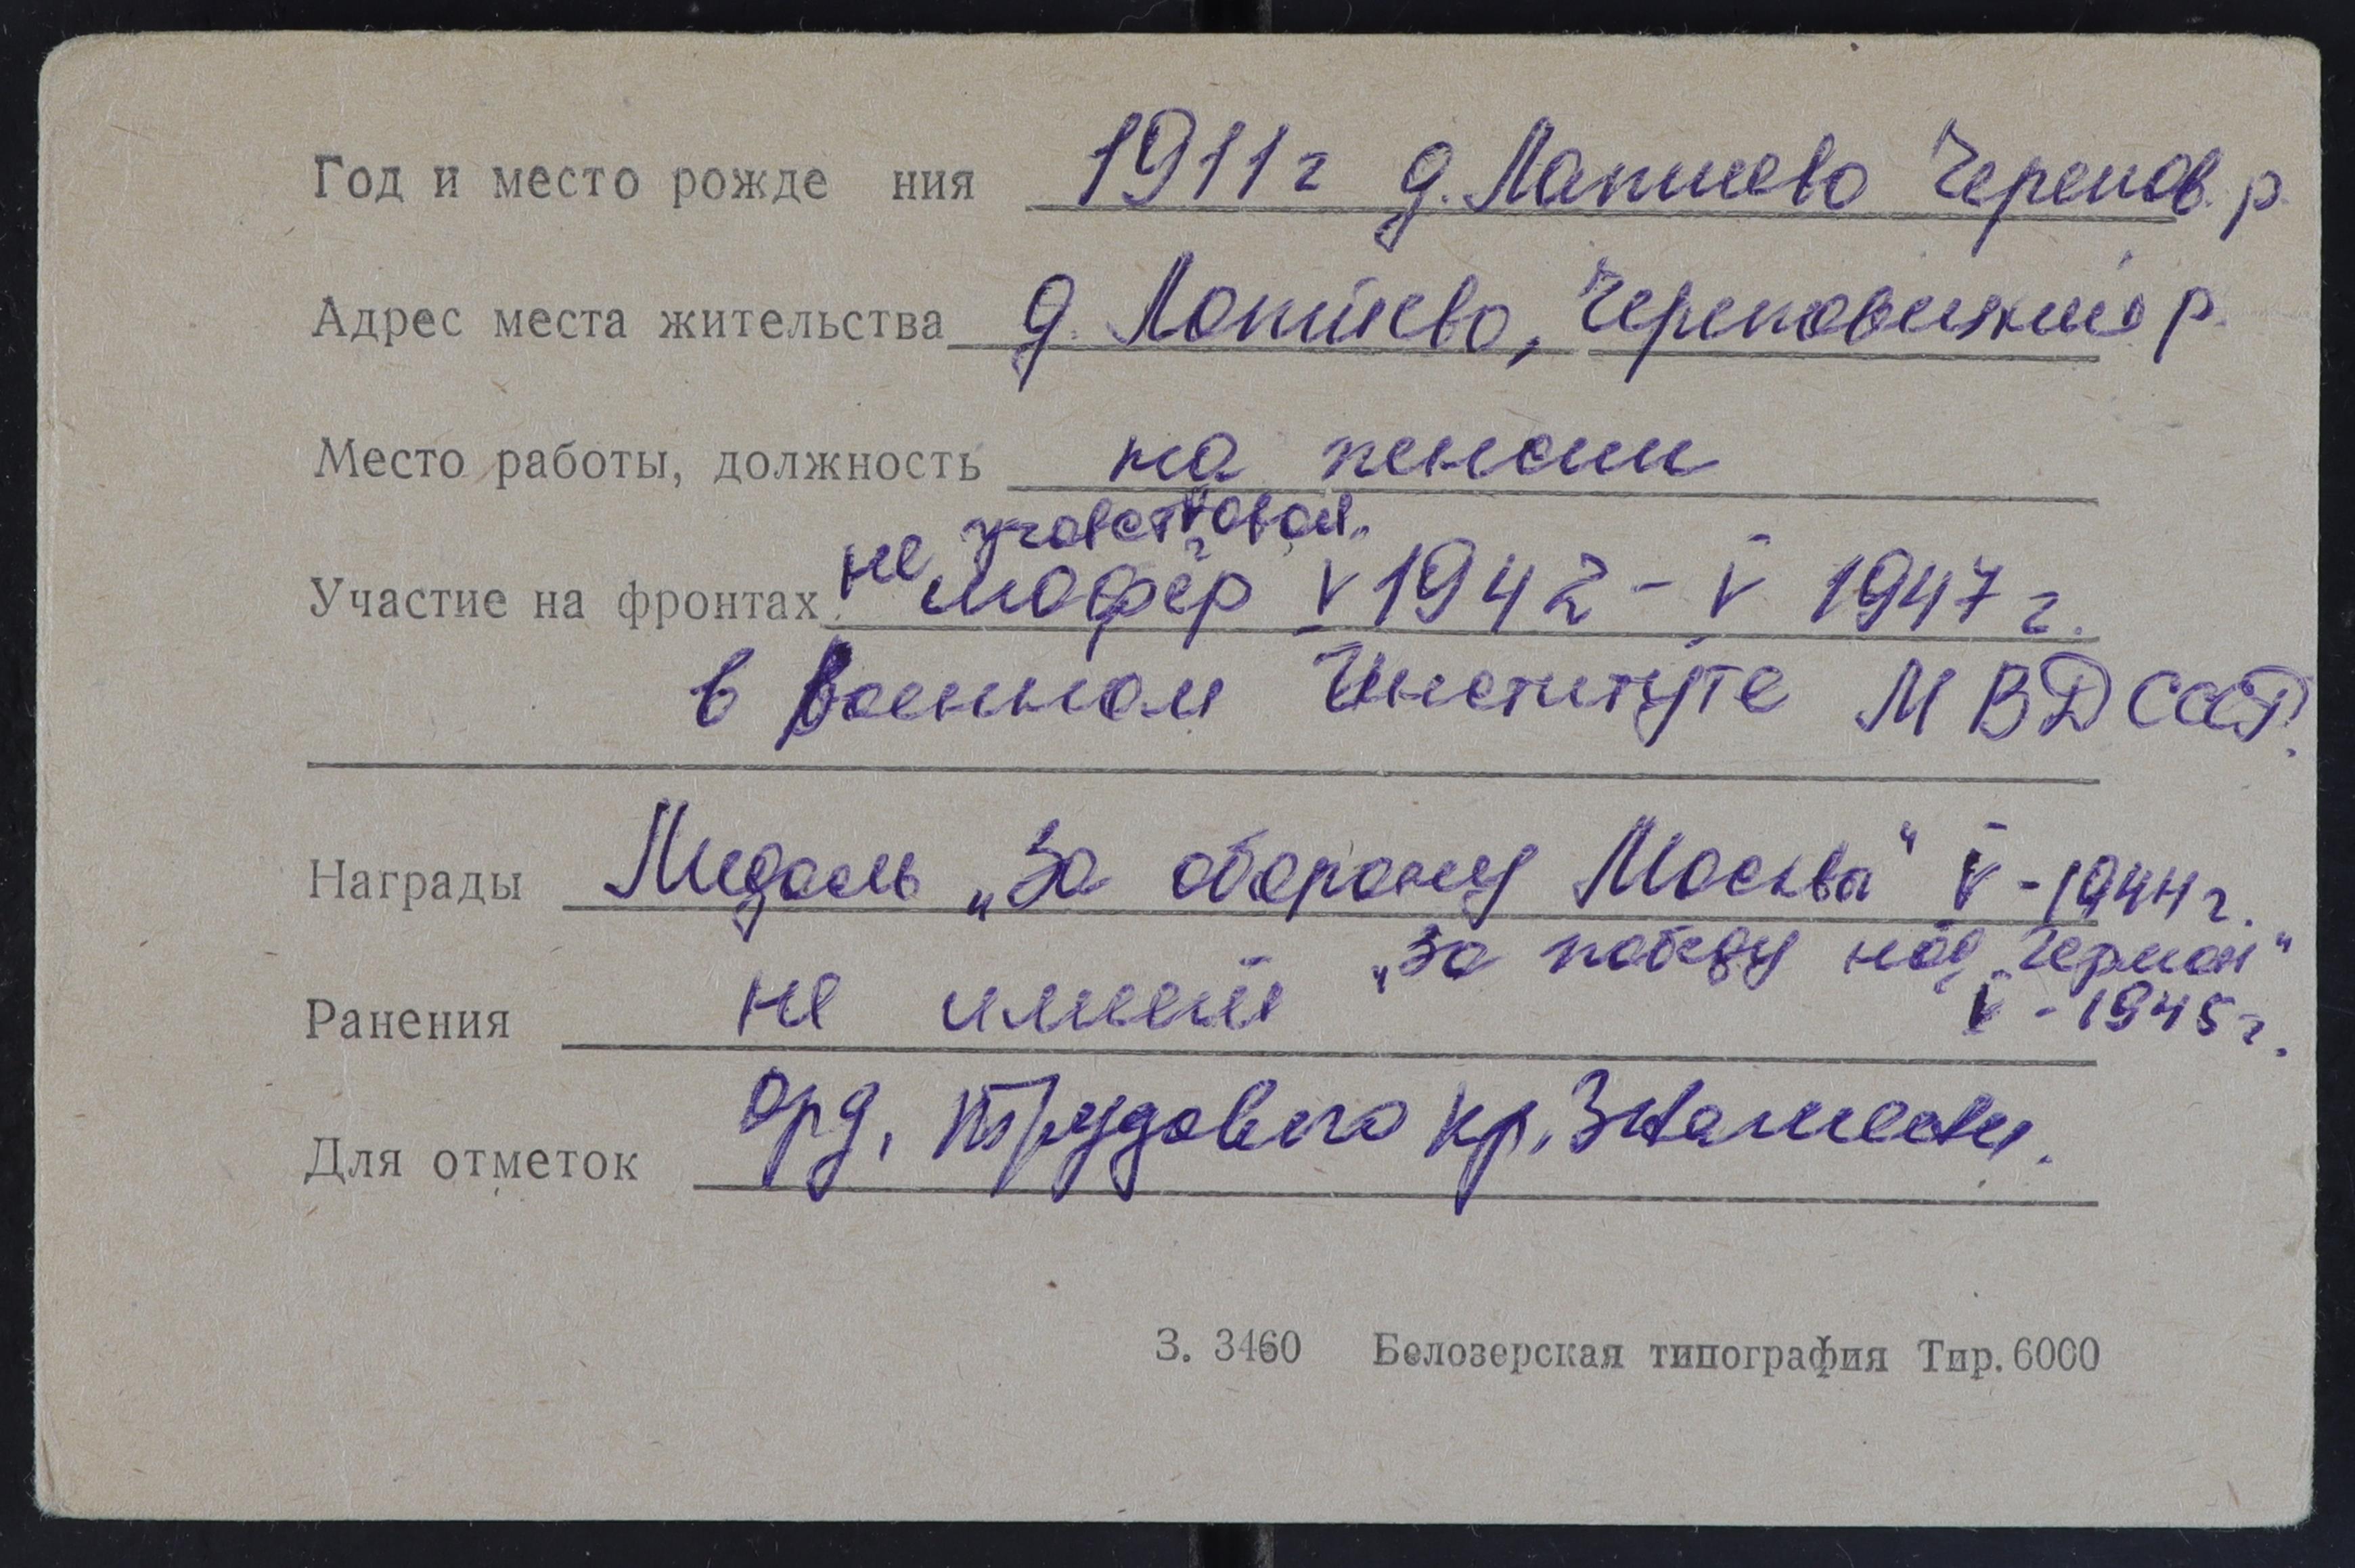 Год и место рожде ния 1911 г д. Лаптево Черепов. р.
Адрес места жительства д. Лаптево, Череповецкий р.
Место работы, должность на пенсии
не участвовал.
Участие на фронтах шофёр V 1942 - V 1947 г.
в Военном Институте МВД СССР.
Награды Медаль „За оборону Москвы" V - 1944 г.
„За победу над Герман"
V - 1945 г.
Ранения не имеет
Для отметок Орд. Трудового Кр. Знамени.
З. 3460 Белозерская типография Тир. 6000